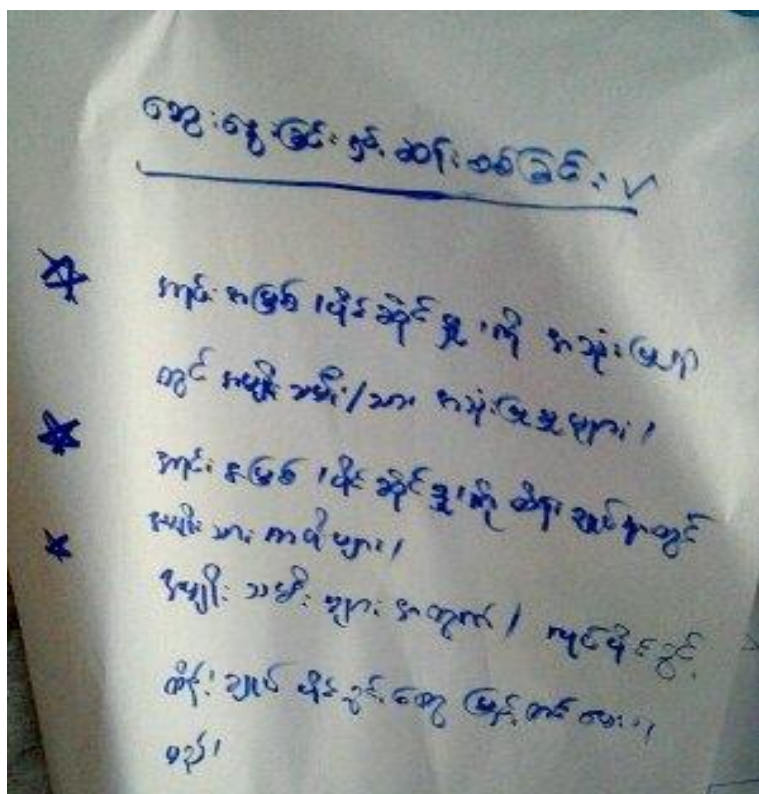 ဆွေးနွေးခြင်းနှင့် ဆန်းစစ်ခြင်း ✓
အရင်းအမြစ်၊ ပိုင်ဆိုင်မှု၊ ကို အသုံးပြုရာ
တွင် အမျိုးသမီး/သား အသုံးပြုသူများ၊
အရင်းအမြစ်၊ ပိုင်ဆိုင်မှု၊ ကို ထိန်းချုပ်ရာတွင်
အမျိုးသား ကာလိများ၊
အမျိုးသမီးများ အတွက်၊ လုပ်ပိုင်ခွင့်
ထိန်းချုပ်ပိုင်ခွင့်တွေ မြှင့်တင်ပေးရ
မည်၊